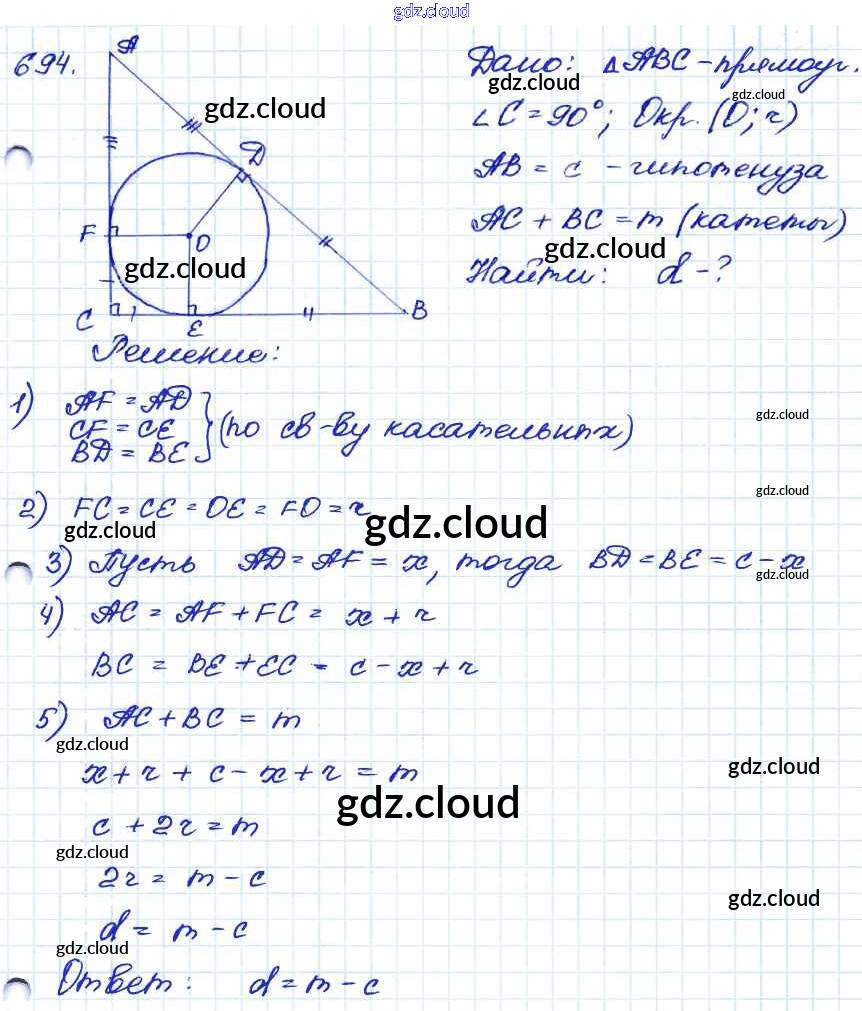 gdz.cloud
694.
A
gdz.cloud
D
F
O
gdz.cloud
C
E
B
Дано: △ABC - прямоуг.
gdz.cloud
∠C = 90°; Окр. (O; r)
AB = c - гипотенуза
AC + BC = m (катеты)
gdz.cloud
Найти: d - ?
Решение:
1) AF = AD
CF = CE
BD = BE } (по св-ву касательных)
gdz.cloud
gdz.cloud
2) FC = CE = OE = FO = r
gdz.cloud
gdz.cloud
3) Пусть AD = AF = x, тогда BD = BE = c - x
gdz.cloud
4) AC = AF + FC = x + r
BC = BE + EC = c - x + r
5) AC + BC = m
gdz.cloud
x + r + c - x + r = m
gdz.cloud
gdz.cloud
c + 2r = m
gdz.cloud
2r = m - c
gdz.cloud
d = m - c
gdz.cloud
Ответ: d = m - c